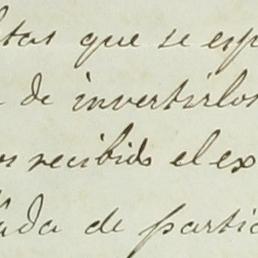 tas que se esp
de invertirlos
os recibido el ex
ada de partic